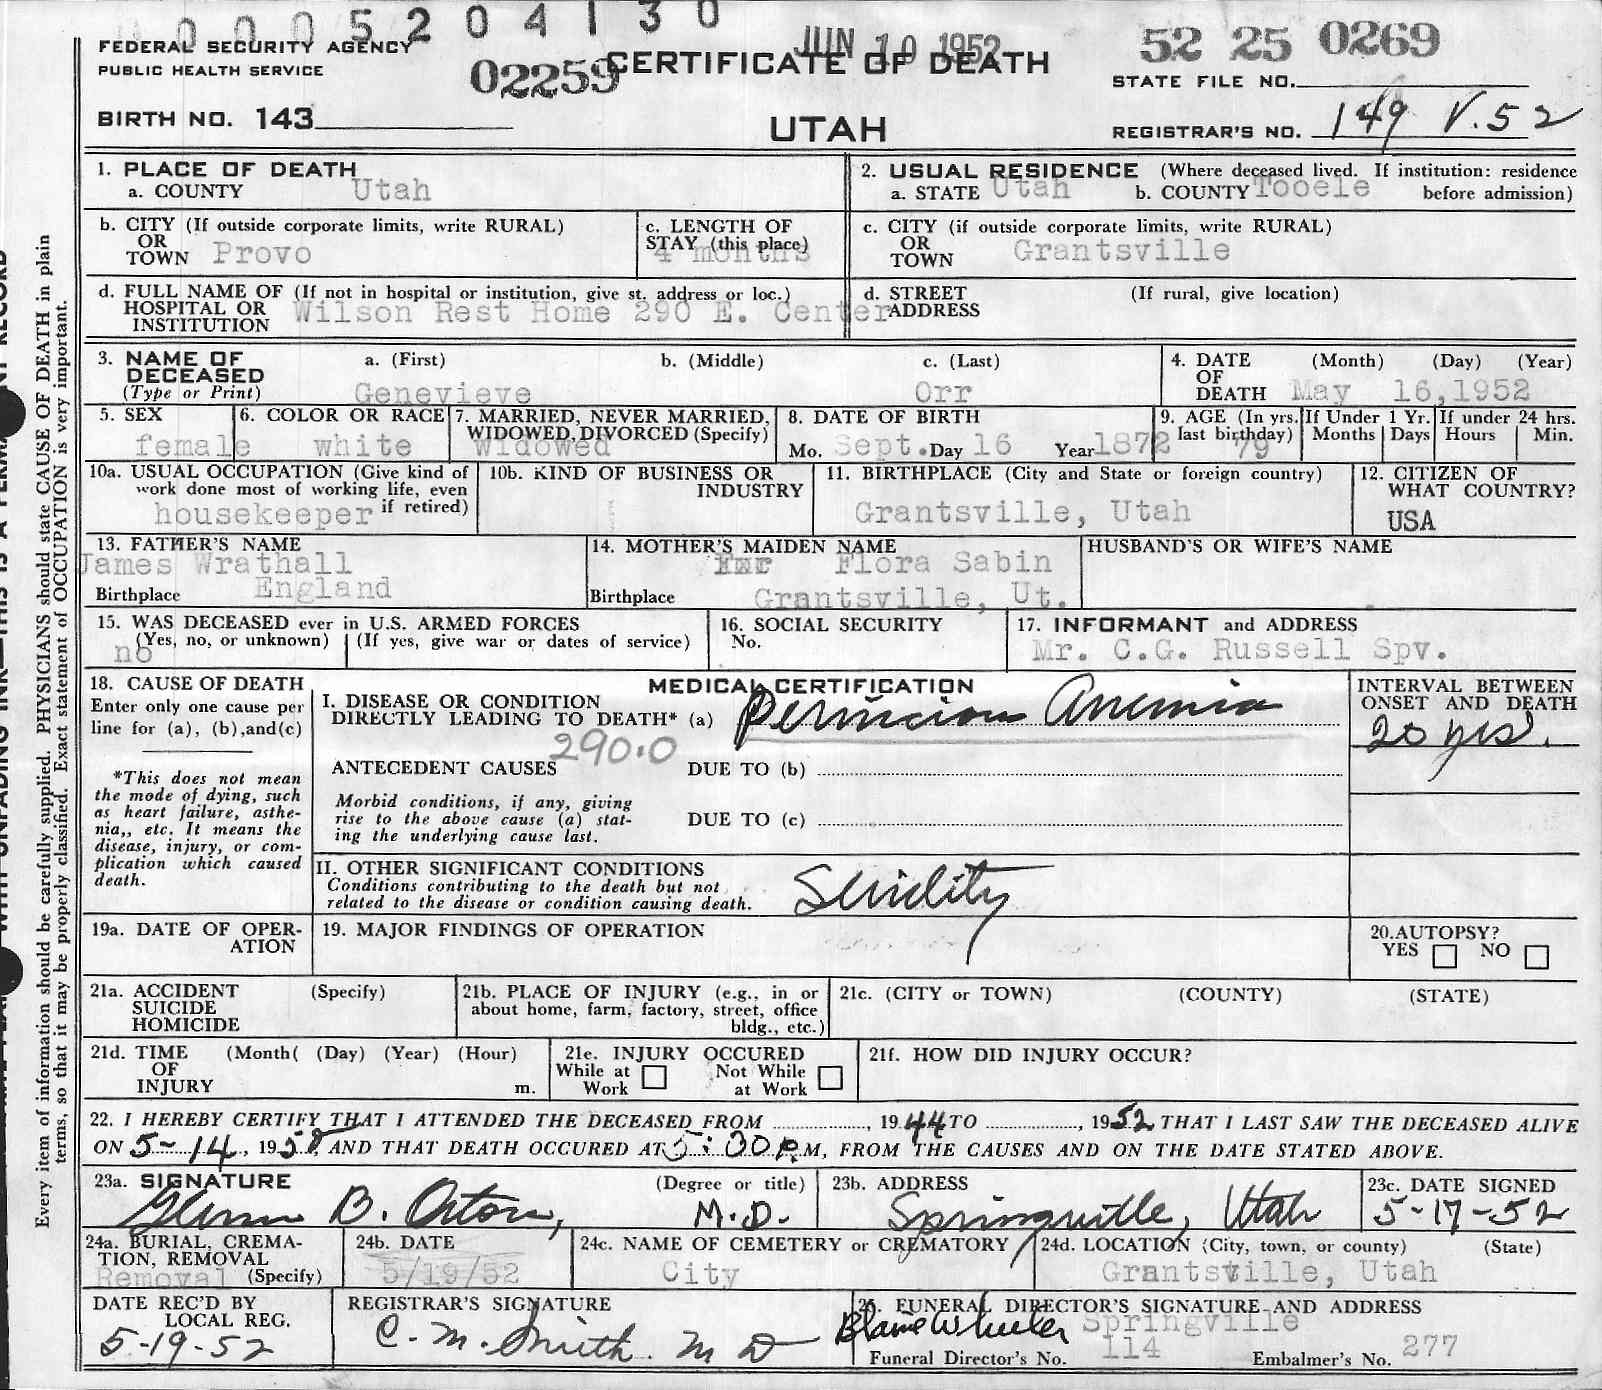 0 0 0 5 2 0 4 1 3 0
FEDERAL SECURITY AGENCY
PUBLIC HEALTH SERVICE
JUN 10 1952
02259
CERTIFICATE OF DEATH
52 25 0269
STATE FILE NO.
BIRTH NO. 143
UTAH
REGISTRAR'S NO. 149 V.52
1. PLACE OF DEATH
a. COUNTY Utah
2. USUAL RESIDENCE (Where deceased lived. If institution: residence
a. STATE Utah b. COUNTY Tooele before admission)
b. CITY (If outside corporate limits, write RURAL)
OR
TOWN Provo
c. LENGTH OF
STAY (this place)
4 months
c. CITY (if outside corporate limits, write RURAL)
OR
TOWN Grantsville
d. FULL NAME OF (If not in hospital or institution, give st. address or loc.)
HOSPITAL OR
INSTITUTION Wilson Rest Home 290 E. Center
d. STREET (If rural, give location)
ADDRESS
3. NAME OF a. (First) b. (Middle) c. (Last)
DECEASED
(Type or Print) Genevieve Orr
4. DATE (Month) (Day) (Year)
OF
DEATH May 16,1952
5. SEX
female
6. COLOR OR RACE
white
7. MARRIED, NEVER MARRIED,
WIDOWED, DIVORCED (Specify)
widowed
8. DATE OF BIRTH
Mo. Sept. Day 16 Year 1872
9. AGE (In yrs.
last birthday)
79
If Under 1 Yr.
Months Days
If under 24 hrs.
Hours Min.
10a. USUAL OCCUPATION (Give kind of
work done most of working life, even
housekeeper if retired)
10b. KIND OF BUSINESS OR
INDUSTRY
11. BIRTHPLACE (City and State or foreign country)
Grantsville, Utah
12. CITIZEN OF
WHAT COUNTRY?
USA
13. FATHER'S NAME
James Wrathall
Birthplace England
14. MOTHER'S MAIDEN NAME
Flora Sabin
Birthplace Grantsville, Ut.
HUSBAND'S OR WIFE'S NAME
15. WAS DECEASED ever in U.S. ARMED FORCES
(Yes, no, or unknown) (If yes, give war or dates of service)
no
16. SOCIAL SECURITY
No.
17. INFORMANT and ADDRESS
Mr. C.G. Russell Spv.
18. CAUSE OF DEATH
Enter only one cause per
line for (a), (b),and(c)
MEDICAL CERTIFICATION
I. DISEASE OR CONDITION
DIRECTLY LEADING TO DEATH* (a) Pernicious Anemia
290.0
INTERVAL BETWEEN
ONSET AND DEATH
20 yrs.
*This does not mean
the mode of dying, such
as heart failure, asthe-
nia,, etc. It means the
disease, injury, or com-
plication which caused
death.
ANTECEDENT CAUSES DUE TO (b)
Morbid conditions, if any, giving
rise to the above cause (a) stat-
ing the underlying cause last.
DUE TO (c)
II. OTHER SIGNIFICANT CONDITIONS
Conditions contributing to the death but not
related to the disease or condition causing death.
Senility
19a. DATE OF OPER-
ATION
19. MAJOR FINDINGS OF OPERATION
20.AUTOPSY?
YES NO
21a. ACCIDENT (Specify)
SUICIDE
HOMICIDE
21b. PLACE OF INJURY (e.g., in or
about home, farm, factory, street, office
bldg., etc.)
21c. (CITY or TOWN) (COUNTY) (STATE)
21d. TIME (Month( (Day) (Year) (Hour)
OF
INJURY m.
21e. INJURY OCCURED
While at Not While
Work at Work
21f. HOW DID INJURY OCCUR?
22. I HEREBY CERTIFY THAT I ATTENDED THE DECEASED FROM , 1944 TO , 1952 THAT I LAST SAW THE DECEASED ALIVE
ON 5-14, 1952 AND THAT DEATH OCCURED AT 5:30 P.M, FROM THE CAUSES AND ON THE DATE STATED ABOVE.
23a. SIGNATURE (Degree or title)
Glenn B. Orton, M.D.
23b. ADDRESS
Springville, Utah
23c. DATE SIGNED
5-17-52
24a. BURIAL, CREMA-
TION, REMOVAL
Removal (Specify)
24b. DATE
5/19/52
24c. NAME OF CEMETERY or CREMATORY
City
24d. LOCATION (City, town, or county) (State)
Grantsville, Utah
DATE REC'D BY
LOCAL REG.
5-19-52
REGISTRAR'S SIGNATURE
C. M. Smith. M D
25. FUNERAL DIRECTOR'S SIGNATURE AND ADDRESS
Blaine Wheeler Springville
Funeral Director's No. 114 Embalmer's No. 277
Every item of information should be carefully supplied. PHYSICIANS should state CAUSE OF DEATH in plain
terms, so that it may be properly classified. Exact statement of OCCUPATION is very important.